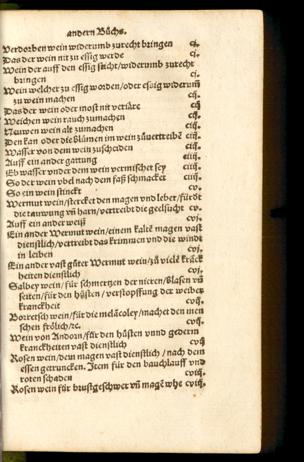 andern Bůchs.
Verdorben wein widerumb zurecht bringen cj.
Das der wein nit zu essig werde cj.
Wein der auff den essig sticht/widerumb zurecht
bringen cj.
Wein welcher zu essig worden/oder essig widerum̃
zu wein machen cj.
Das der wein oder most nit verjäre cij
Weichen wein rauch zumachen cij
Neuwen wein alt zumachen ciij.
Den kan oder die blůmen im wein zůuertreibẽ ciij.
Wasser von dem wein zuscheiden ciij.
Auff ein ander gattung ciiij.
Eb wasser vnder dem wein vermischet sey ciiij.
So der wein vbel nach dem faß schmacket ciiij.
So ein wein stinckt cv.
Wermut wein/stercket den magen vnd leber/fürdt
die tauwung vñ harn/vertreibt die geelsucht cv.
Auff ein ander weiß cvj.
Ein ander Wermut wein/einem kaltẽ magen vast
dienstlich/vertreibt das krimmen vnd die windt
in leiben cvj.
Ein ander vast gůter Wermut wein/zů vielẽ kräck
heiten dienstlich cvj.
Salbey wein/für schmertzen der nieren/blasen vñ
seiten/für den hůsten/verstopffung der weiber
kranckheit cvij.
Boretsch wein/für die melãcoley/machet den men
schen frölich/ꝛc. cvij.
Wein von Andorn/für den hůsten vnnd gederm
kranckheiten vast dienstlich cvij
Rosen wein/dem magen vast dienstlich/nach dem
essen getruncken. Item für den bauchlauff vnd
roten schaden cviij.
Rosen wein für brustgeschwer vñ magẽ whe cviij.